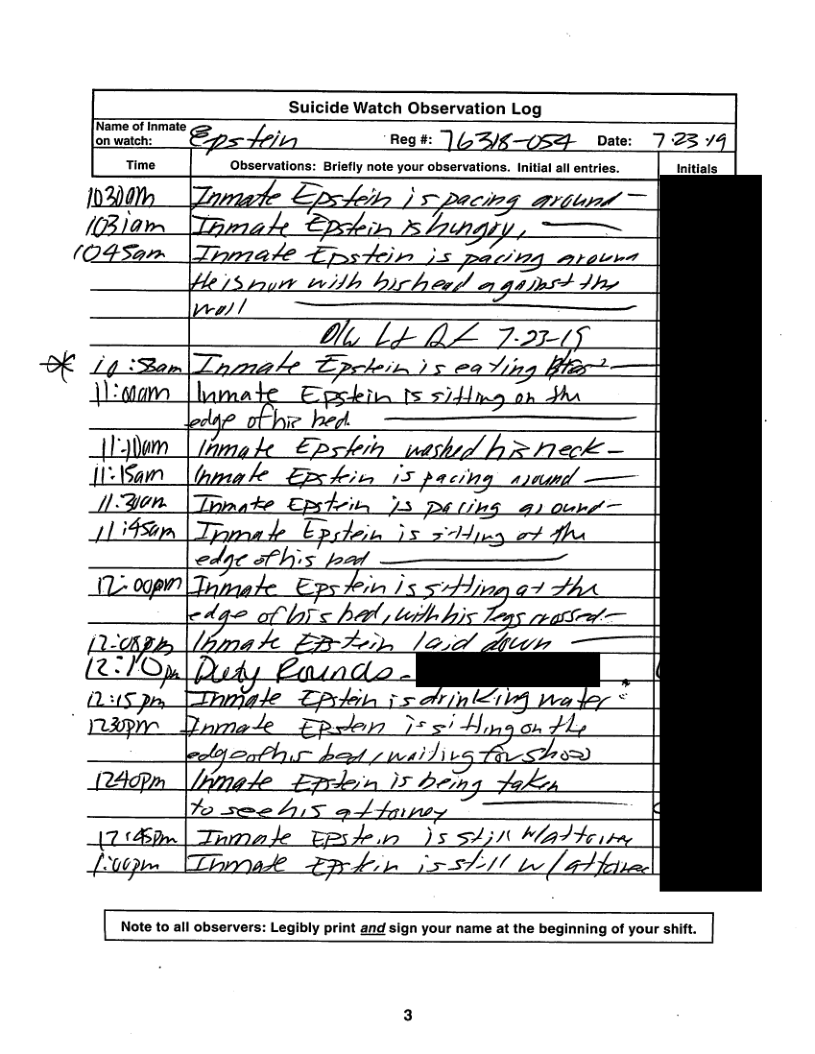 Suicide Watch Observation Log
Name of Inmate on watch: Epstein Reg #: 76318-054 Date: 7-23-19
Time Observations: Briefly note your observations. Initial all entries. Initials
1030am Inmate Epstein is pacing around —
1031am Inmate Epstein is hungry, —
1045am Inmate Epstein is pacing around
He is now with his head against the
wall —
Lt 7-23-19
10:58am Inmate Epstein is eating —
11:00am Inmate Epstein is sitting on the
edge of his bed. —
11:10am Inmate Epstein washed his neck —
11:15am Inmate Epstein is pacing around —
11:30am Inmate Epstein is pacing around —
11:45am Inmate Epstein is sitting at the
edge of his bed —
12:00pm Inmate Epstein is sitting at the
edge of his bed, with his legs crossed. —
12:08pm Inmate Epstein laid down —
12:10pm Duty Rounds -
12:15pm Inmate Epstein is drinking water
1230pm Inmate Epstein is sitting on the
edge of his bed, waiting for
1240pm Inmate Epstein is being taken
to see his attorney —
12:45pm Inmate Epstein is still w/attorney
1:00pm Inmate Epstein is still w/
Note to all observers: Legibly print and sign your name at the beginning of your shift.
3